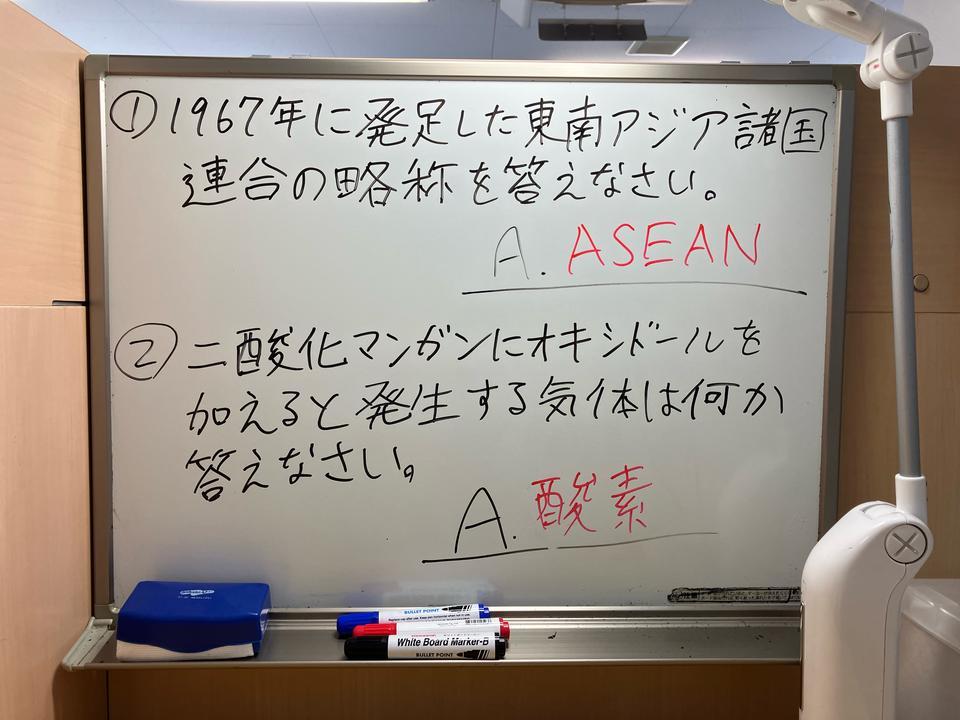 ①1967年に発足した東南アジア諸国
連合の略称を答えなさい。
A. ASEAN
②二酸化マンガンにオキシドールを
加えると発生する気体は何か
答えなさい。
A. 酸素
BULLET POINT
White Board Marker-B
BULLET POINT